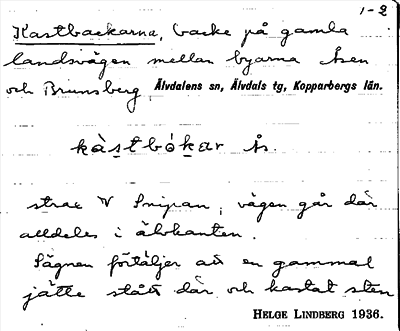 1-2
Kastbackarna, backe på gamla
landsvägen mellan byarna Åsen
och Brunsberg, Älvdalens sn, Älvdals tg, Kopparbergs län.
kàstbókar Ås.
strax V Snipan, vägen går där
alldeles i älvkanten.
Sägnen förtäljer att en gammal
jätte stått där och kastat sten
HELGE LINDBERG 1936.